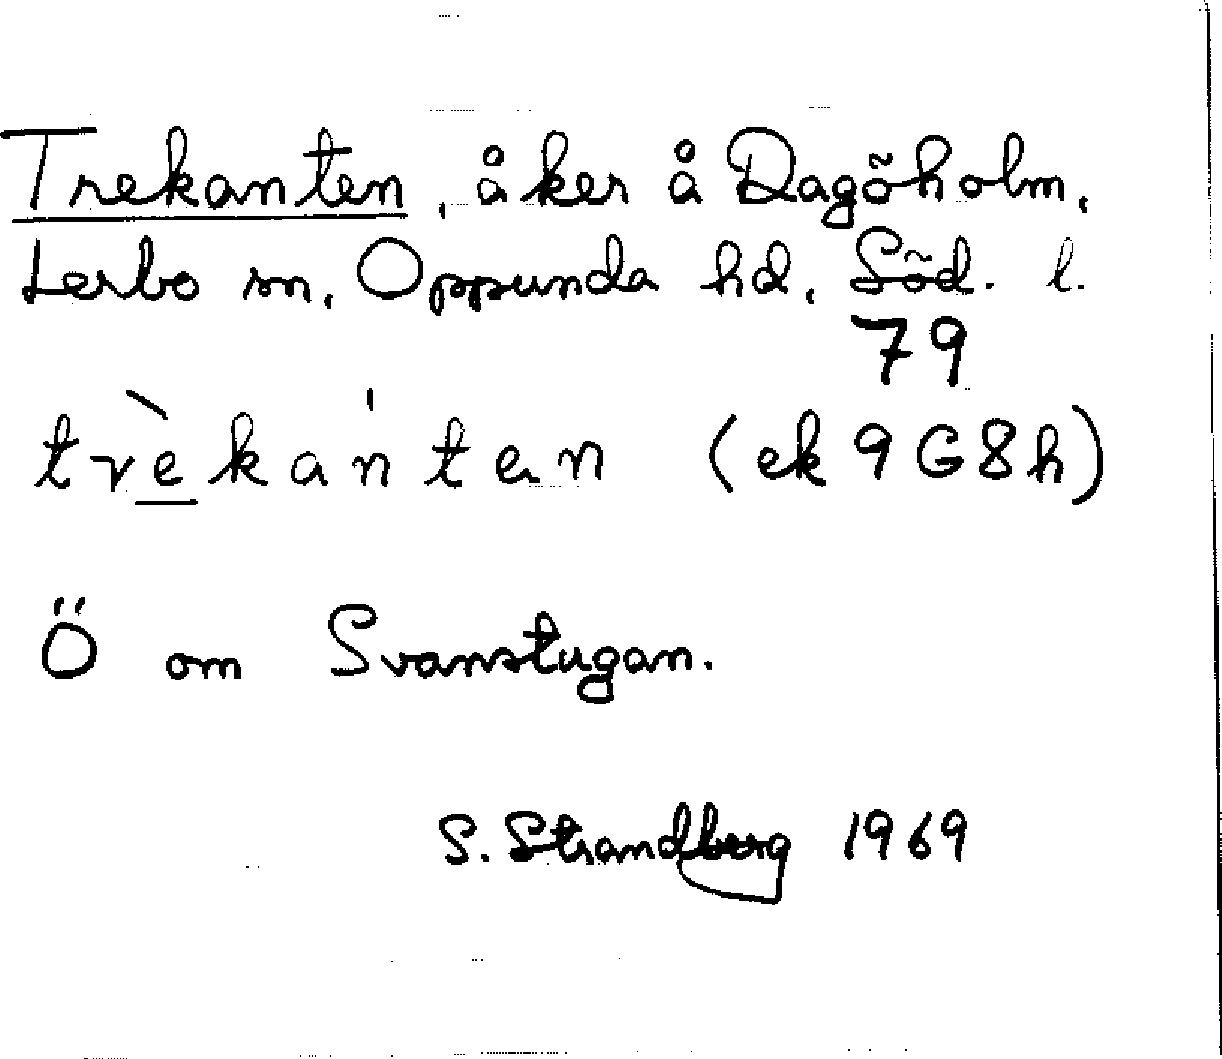 Trekanten, åker å Dagöholm,
Lerbo sn, Oppunda hd, Söd. l.
79
trèkán ten (ek 9G8h)
Ö om Svanstugan.
S. Strandberg 1969